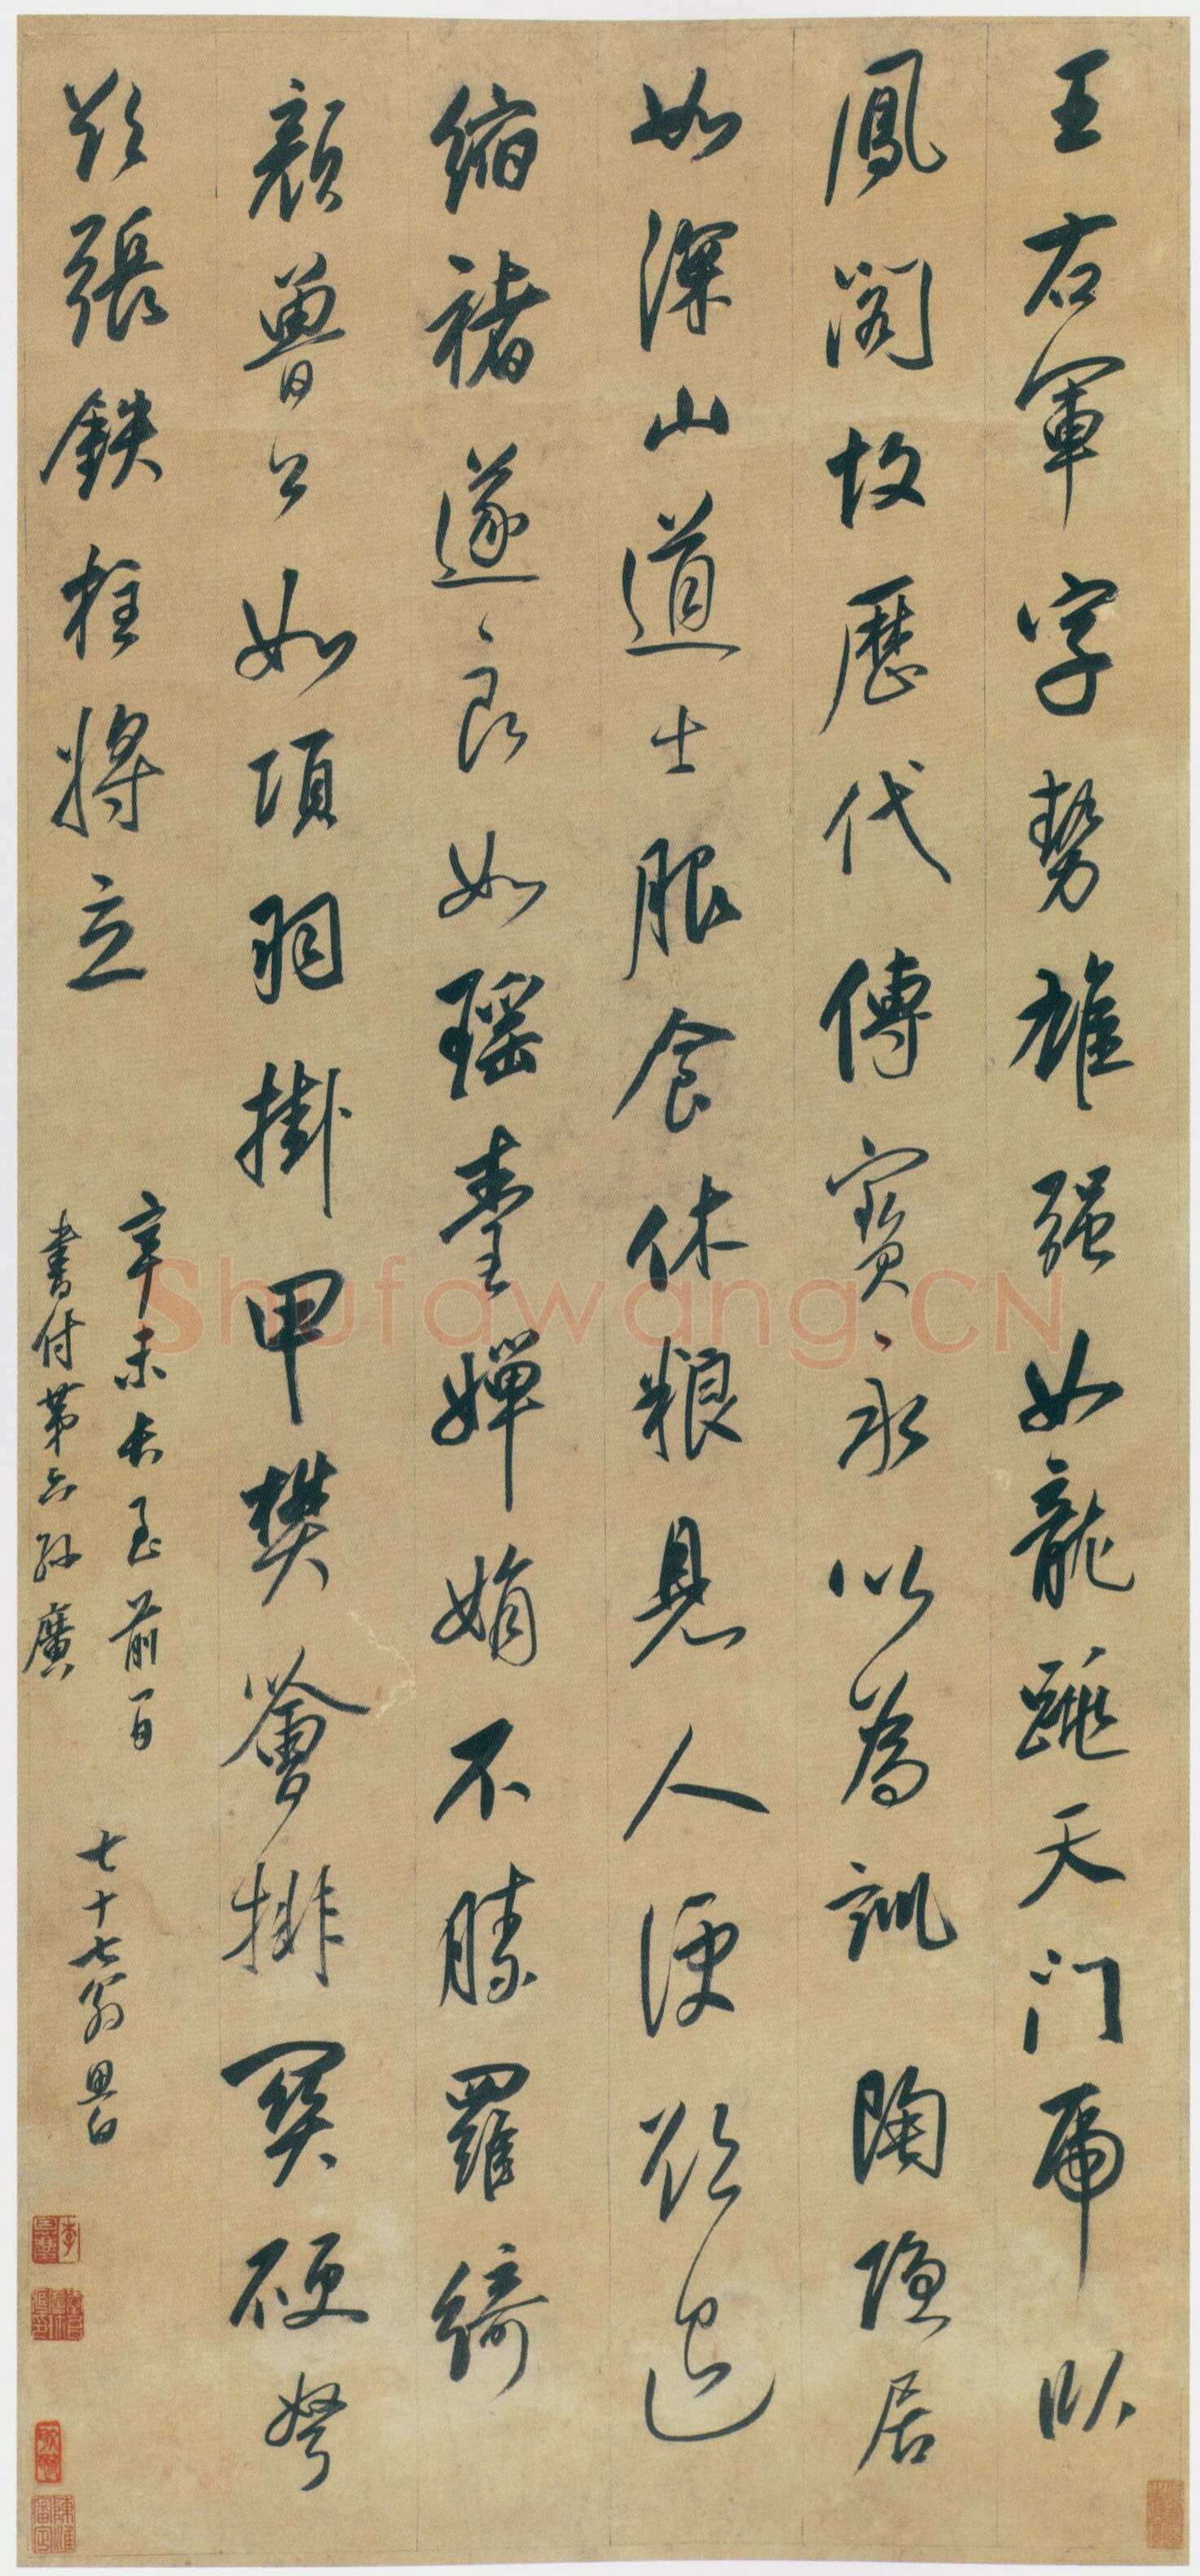 王右軍字勢雄强如龍跳天門虎臥
鳳閣故歷代傳寶〻永以為訓陶隱居
如深山道士服食休粮見人便欲退
縮褚遂〻良如瑶臺嬋娟不勝羅綺
顏魯公如項羽掛甲樊噲排突硬弩
欲張鉄柱將立
辛未長至前一日
書付第六孫廣
七十七翁思白
陳淮
審定
Shufawang.CN